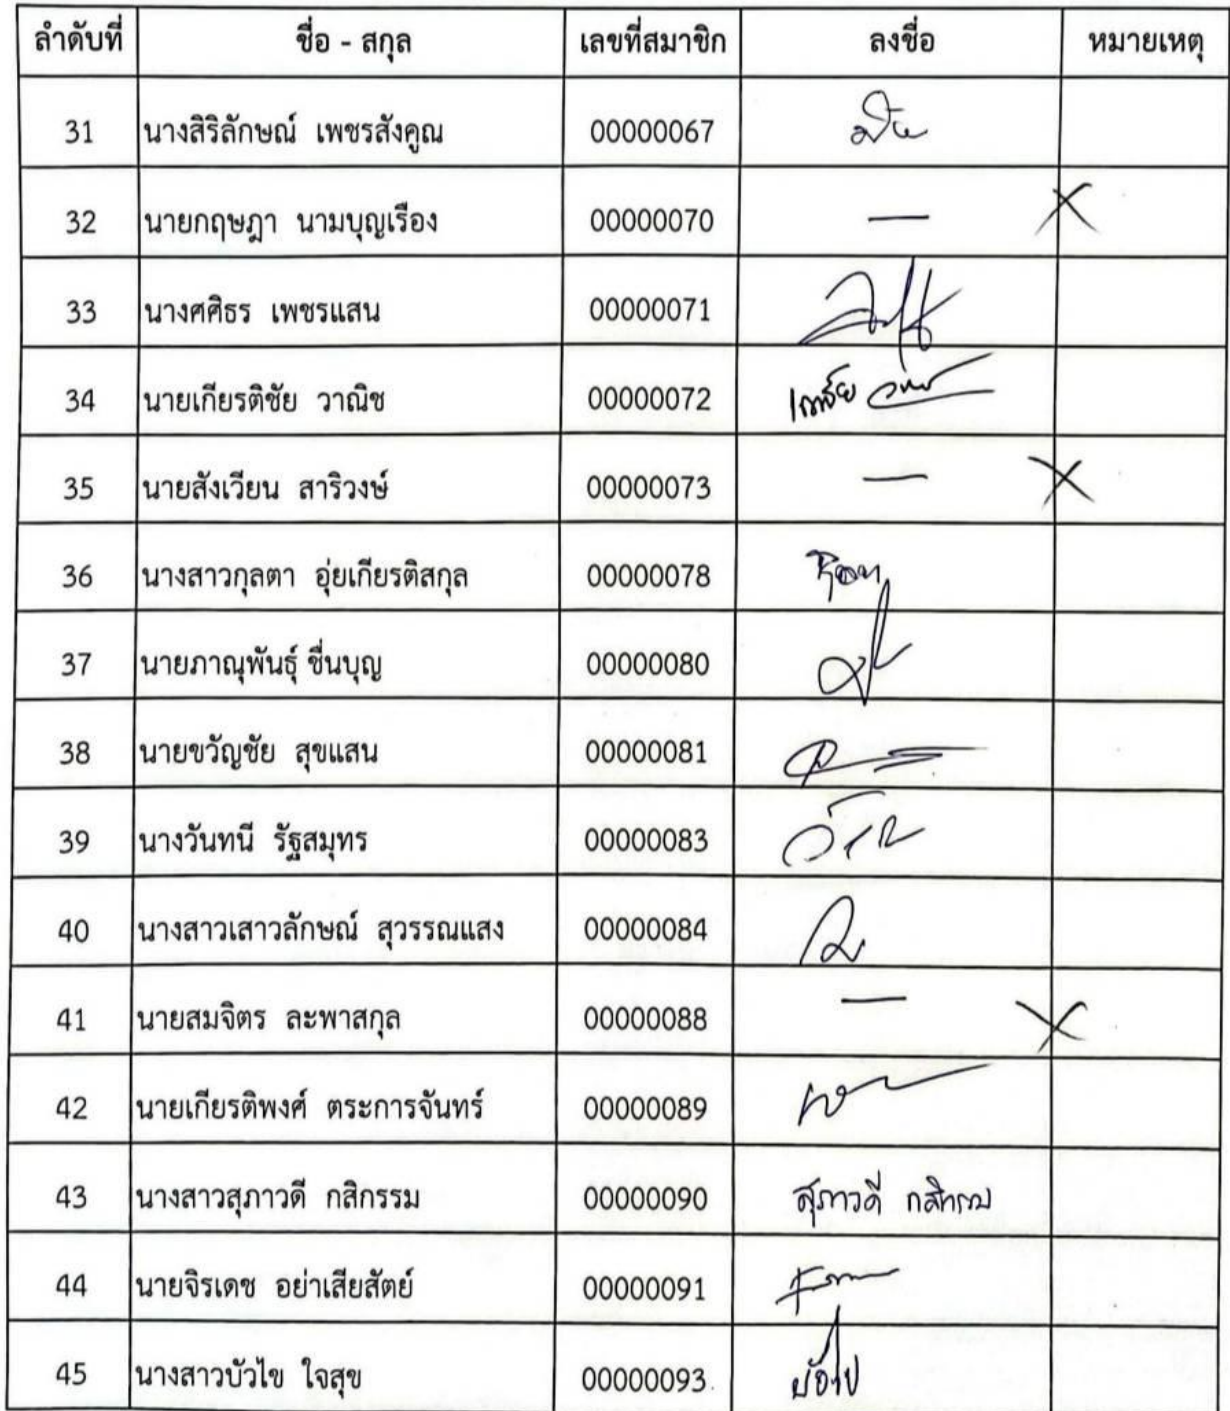 ลำดับที่ ชื่อ - สกุล เลขที่สมาชิก ลงชื่อ หมายเหตุ
31 นางสิริลักษณ์ เพชรสังคูณ 00000067
32 นายกฤษฎา นามบุญเรือง 00000070 —
33 นางศศิธร เพชรแสน 00000071
34 นายเกียรติชัย วาณิช 00000072
35 นายสังเวียน สาริวงษ์ 00000073 —
36 นางสาวกุลตา อุ่ยเกียรติสกุล 00000078
37 นายภาณุพันธุ์ ชื่นบุญ 00000080
38 นายขวัญชัย สุขแสน 00000081
39 นางวันทนี รัฐสมุทร 00000083
40 นางสาวเสาวลักษณ์ สุวรรณแสง 00000084
41 นายสมจิตร ละพาสกุล 00000088 —
42 นายเกียรติพงศ์ ตระการจันทร์ 00000089
43 นางสาวสุภาวดี กสิกรรม 00000090 สุภาวดี กสิกรรม
44 นายจิรเดช อย่าเสียสัตย์ 00000091
45 นางสาวบัวไข ใจสุข 00000093